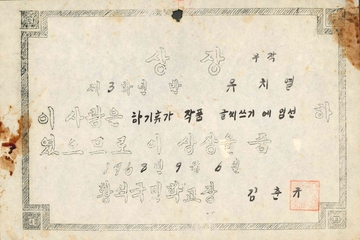 상 장
제 3 학년 반 우 치 열
이 사람은 하기휴가 작품 글씨쓰기 에 입선 하
였으므로 이 상장을 줌
1963 년 9 월 6 일
국민학교장 김 춘